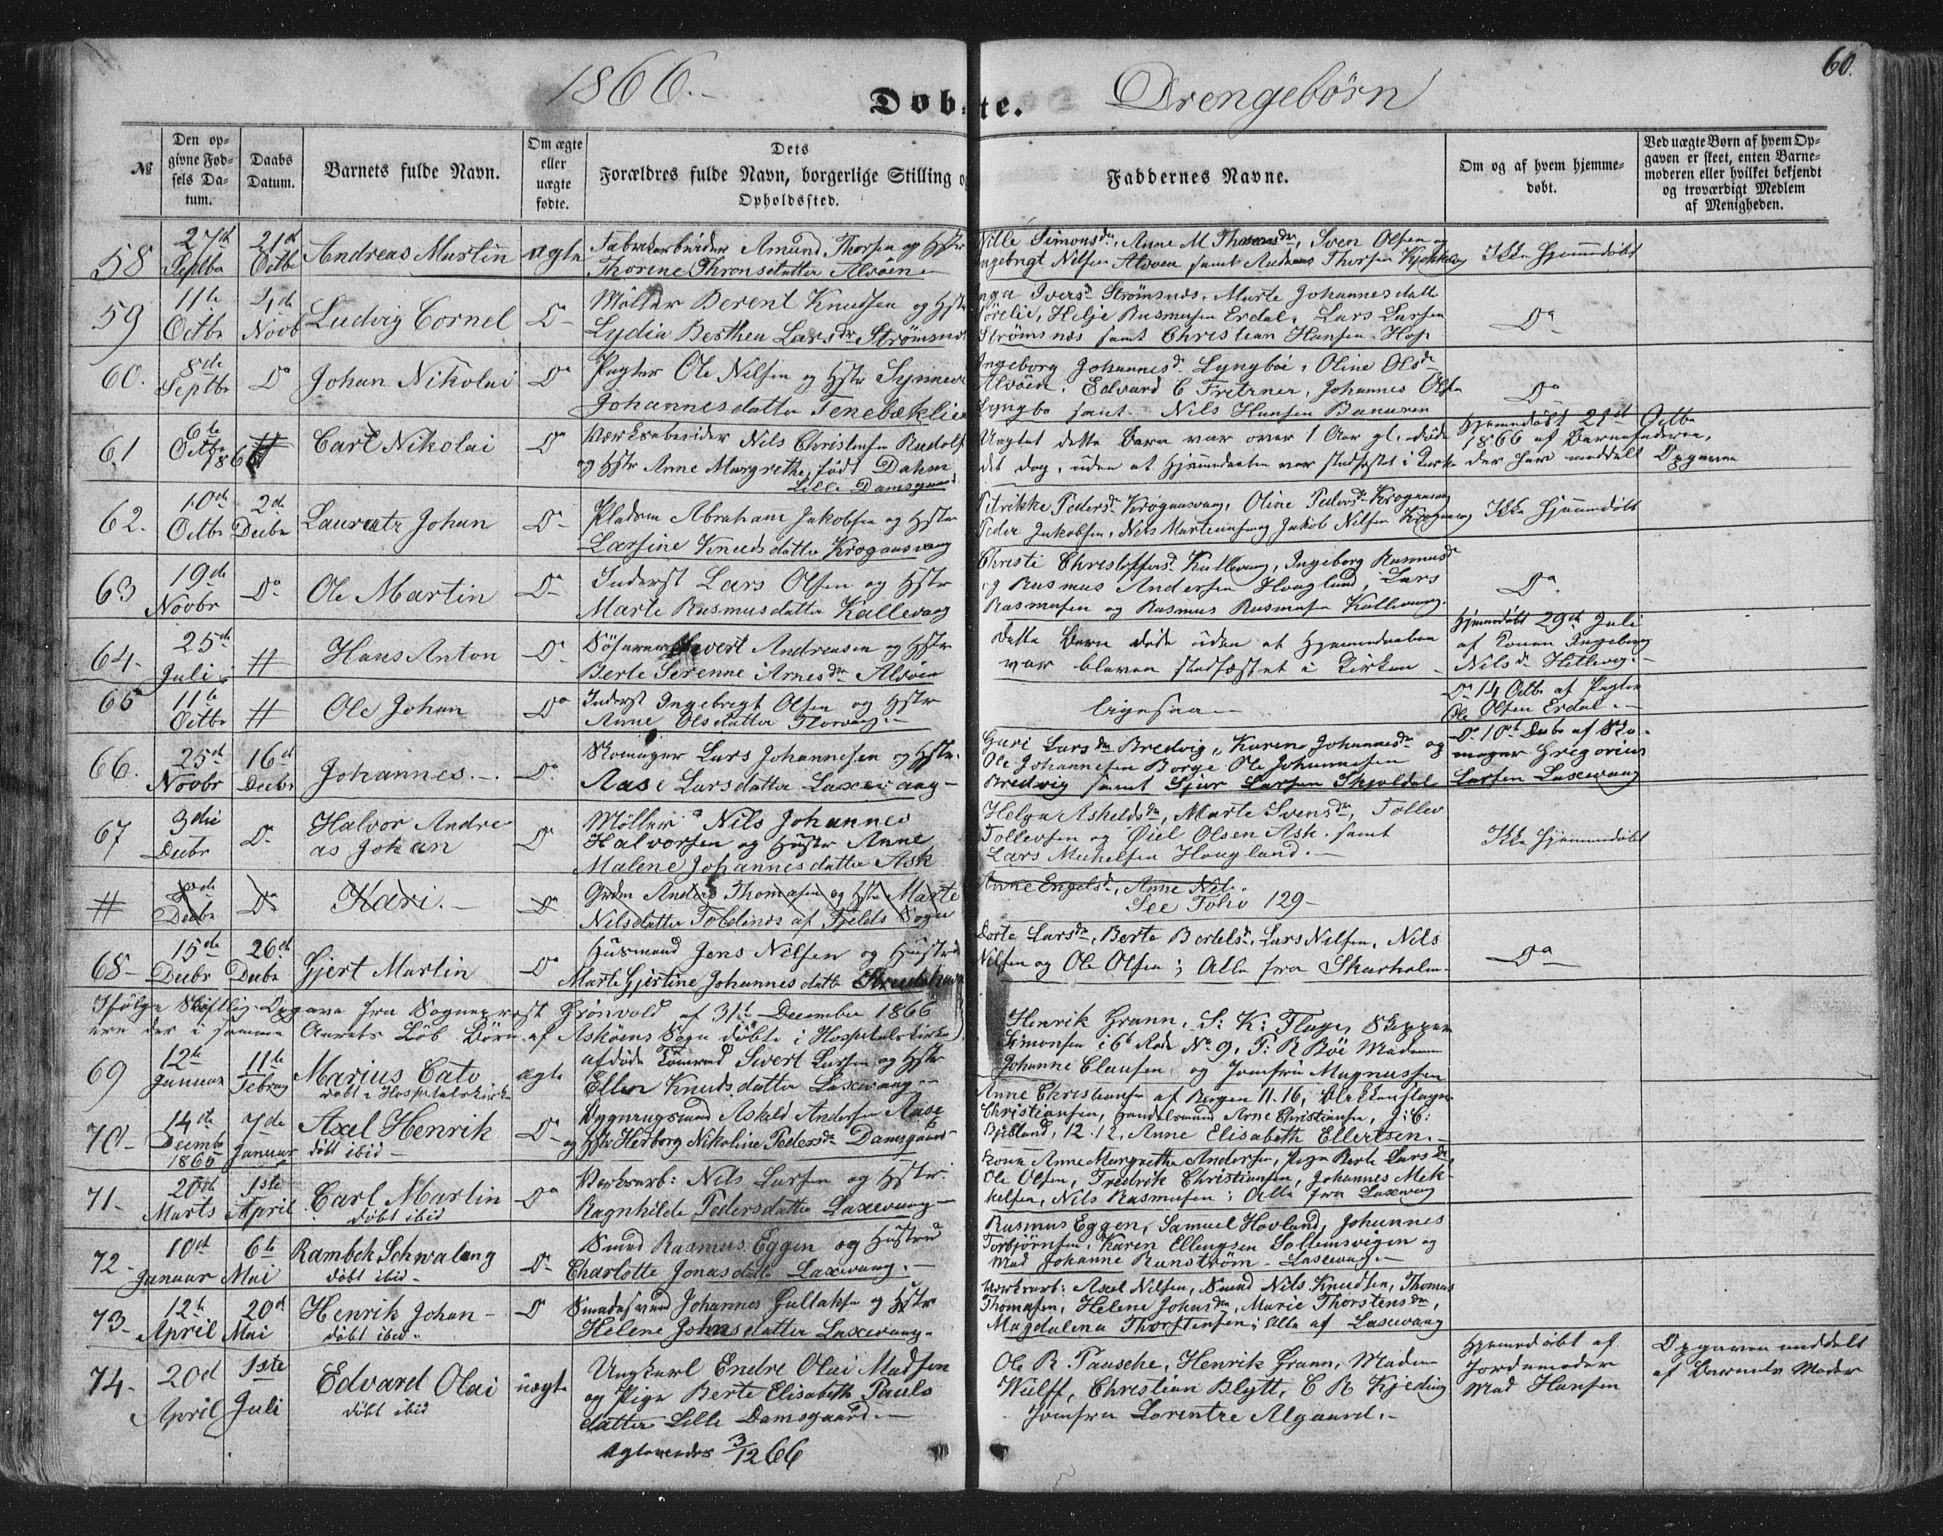 1866.-
Døbte.
Drengebørn
60.
№
Den opgivne Fødsels Datum.
Daabs Datum.
Barnets fulde Navn.
Om ægte eller uægte fødte.
Dets Forældres fulde Navn, borgerlige Stilling og Opholdssted.
Faddernes Navne.
Om og af hvem hjemmedøbt.
Ved uægte Børn af hvem Opgaven er skeet, enten Barnemoderen eller hvilket bekjendt og troværdigt Medlem af Menigheden.
58 27de Septbr 21de Octbr Andreas Martin ægte
Fabrikarbeider Amund Thorsen og Hstr
Thorine Thronsdatter Alvøen
Nille Simonsdr, Anne M Thomasdr, Sven Olsen og
Ingebrigt Nilsen Alvøen samt Andreas Thorsen
Ikke Hjemmedøbt
59 11te Octbr 4de Novb Ludvig Cornel Do
Møller Berent Knudsen og Hstr
Lydia Berthea Larsdr Strømsnes
Inga Iversdr Strømsnes, Marte Johannesdatt
Helje Rasmusen Erdal, Lars Larsen
Strømsnæs samt Christian Hansen Hop
Do
60. 8de Septbr Do Johan Nikolai Do
Pagter Ole Nilsen og Hstr Synneve
Johannesdatter Tenebæklien
Ingeborg Johannesd. Lyngbøe, Oline Olsdr
Alvøen, Edvard C Fretrner, Johannes Olsen
Lyngbø samt Nils Hansen Banuren
Do
61 6te Octbr 1866 # Carl Nikolai Do
Værksarbeider Nils Christensen Rudolf
og Hstr Anne Margrethe, født Dahm
Lille Damsgaard
Uagtet dette Barn var over 1 Aar gl. døde
det dog, uden at Hjemmedaaben var stadfæstet i Kirke
Hjemmedøbt 21de Octbr
1866 af Barnefaderen,
der har meddelt Opgaven
62. 10de Octbr 2de Decbr Lauratz Johan Do
Pladsm Abraham Jakobsen og Hstr
Larsine Knudsdatter Krogaasvaag
Petrikke Pedersd. Krogaasvaag, Oline Pedersdr Krogaasvaag
Peder Jakobsen, Nils Martinusen og Jakob Nilsen
Ikke Hjemmedøbt
63 19de Novbr Do Ole Martin Do
Inderst Lars Olsen og Hstr
Marte Rasmusdatter Kallevaag
Christi Christoffersd. Kallevaag, Ingeborg Rasmusdr
og Rasmus Andersen Hougland, Lars
Rasmusen og Rasmus Rasmusen Kallevaag
Do
64- 25de Juli # Hans Anton Do
Andreasen og Hstr
Berte Serenne Arnesdr Alvøen
Dette Barn døde uden at Hjemmedaaben
var bleven stadfæstet i Kirken
Hjemmedøbt 29de Juli
af Konen Ingeborg
Nilsdr
65 11te Octbr # Ole Johan Do
Inderst Ingebrigt Olsen og Hstr
Anne Olsdatter Florvaag
ligesaa
Do 14 Octbr af Pagter
Ole Olsen Erdal
66. 25de Novbr 16de Decbr Johannes. Do
Skomager Lars Johannesen og Hstr
Aase Larsdatter Laxevaag
Guri Larsdr Bredvig, Karen Johannesdr og
Ole Johannesen Borge Ole Johannesen
Bredvig samt Sjur Larsen Skjoldal
Do 10de Decbr af Sko-
mager Gregorius
Larsen Laxevaag
67 3die Decbr Do Halvor Andre-
as Johan Do
Møller Nils Johannes
Halvorsen og Hustr Anne
Malene Johannesdatter Ask
Helga Askeldsdr, Marte Svensdr, Tollev
Tollevsen og Øiel Olsen Ask samt
Lars Michelsen Hougland.
Ikke Hjemmedøbt
# Decbr Do Kari. Do
Anders Thomasen og Hstr Marte
Nilsdatter Toldnes af Fjelds Sogn
Anne Engelsd, Anne Nel.
See Folio 129-
68- 15de Decbr 26de Decbr Gjert Martin Do
Husmand Jens Nilsen og Hustru
Marte Gjertine Johannesdatter
Dorte Larsdr, Berte Bertelsdr, Lars Nilsen, Nils
Nilsen og Ole Olsen; Alle fra Skarholm
Do
Ifølge Skriftlig Opgave fra Sognepræst Grønvold af 31te December 1866
ere der i samme Aarets Løb Børn af Askøens Sogn døbte i Hospitalskirken
69 12te Januar 11te Februar Marius Cato
døbt i Hospitalskirken ægte
afdøde Sivert Larsen og Hstr
Ellen Knudsdatter Laxevaag
Henrik Grann, S: K: Flage, Skipper
Simonsen i 6te Rode No 9, F: R Bøe Madam
Johanne Clausen og Jomfru Magnussen
70- 14de Decembr 1865 7de Januar Axel Henrik
døbt ibid Do
Askeld Andersen Aase
og Hstr Herborg Nikoline Pedersdr Damsgaard
Anne Christensen af Bergen 11.16,
Christiansen, Handelsmand Arne Christiansen, J: C:
12.12, Anne Elisabeth Ellertsen.
71- 20de Marts 1ste April Carl Martin
døbt ibid Do
Værksarb: Nils Larsen og Hstr.
Ragnhilde Pedersdatter Laxevaag
Kone Anne Margrethe Andersen, Pige Berte Larsdr,
Ole Olsen, Fredrik Christiansen, Johannes Mik-
kelsen, Nils Rasmusen; Alle fra Laxevaag
72- 10de Januar 6te Mai Rambek Schwalang
døbt ibid Do
Smed Rasmus Eggen og Hustru
Charlotte Jonasdatter Laxevaag.
Rasmus Eggen, Samuel Hovland, Johannes
Torbjørnsen, Karen Ellengsen Solhemsvigen og
Mad Johanne Runstrøm Laxevaag
73- 12te April 20de Mai Henrik Johan
døbt ibid Do
Smedesvend Johannes Gullaksen og Hstr
Helene Johnsdatter Laxevaag.
Værksarb: Axel Nilsen, Smed Nils Knudsen, Thomas
Thomasen, Helene Johnsdr, Marie Thorstensdr,
Magdalena Thorstensen; Alle af Laxevaag
74- 20de April 1ste Juli Edvard Olai
døbt ibid uægte
Ungkarl Endre Olai Madsen
og Pige Berte Elisabeth Pauls
datter Lille Damsgaard.
Ægteviedes 3/12 66
Ole R. Pausche, Henrik Grann, Madam
Wulff, Christian Blytt, C R Kjeding
Jomfru Lorentze Algaard.
Hjemmedøbt af
Jordemoder
Mad Hansen
Opgaven meddelt
af Barnets Moder